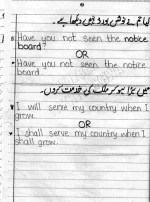 نوٹس بورڈ نہیں دیکھا ہے۔
Have you not seen the notice
board?
OR
Have you not seen the notice
board
میں بڑا ہو کر ملک کی خدمت کروں
I will serve my country when I
grow.
OR
I shall serve my country when I
shall grow.